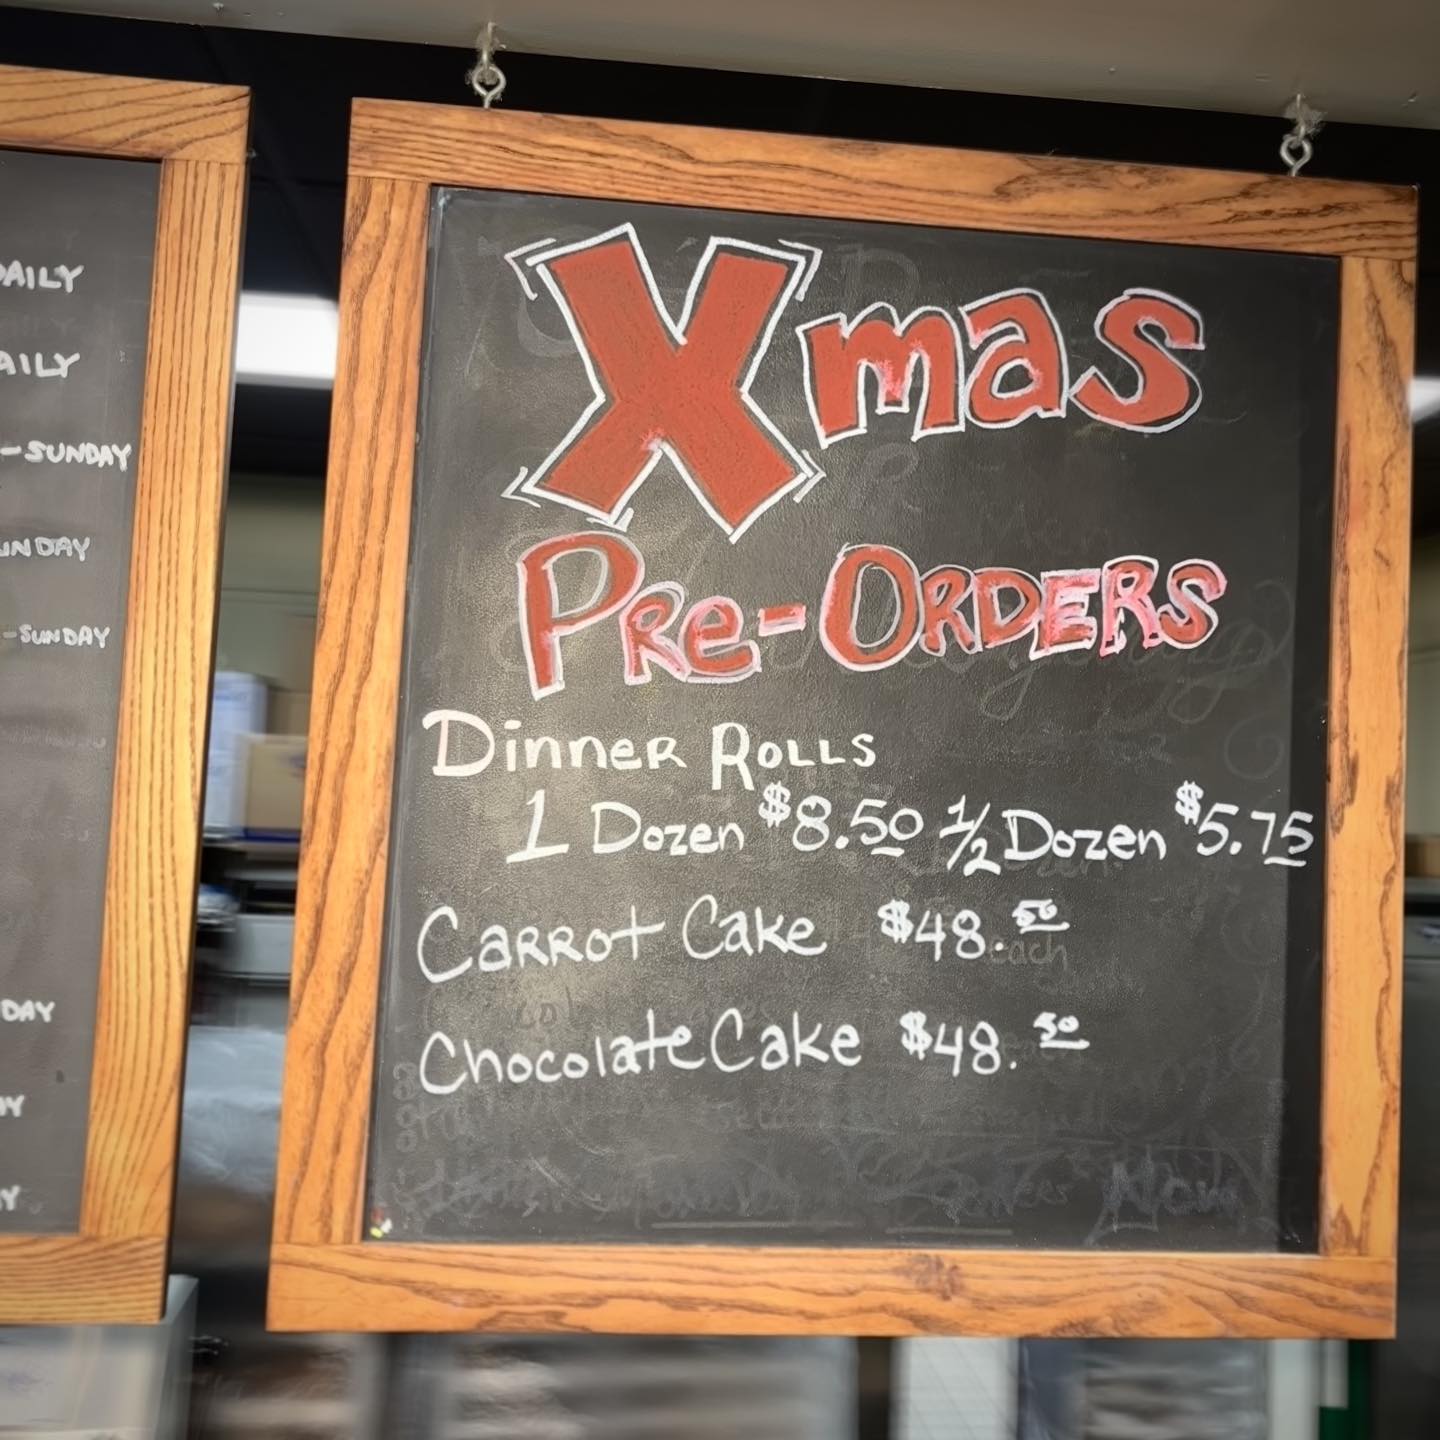 DAILY
DAILY
-SUNDAY
SUNDAY
-SUNDAY
DAY
Xmas
Pre-Orders
Dinner Rolls
1 Dozen $8.50 1/2 Dozen $5.75
Carrot Cake $48.50
each
Chocolate Cake $48.50
Now